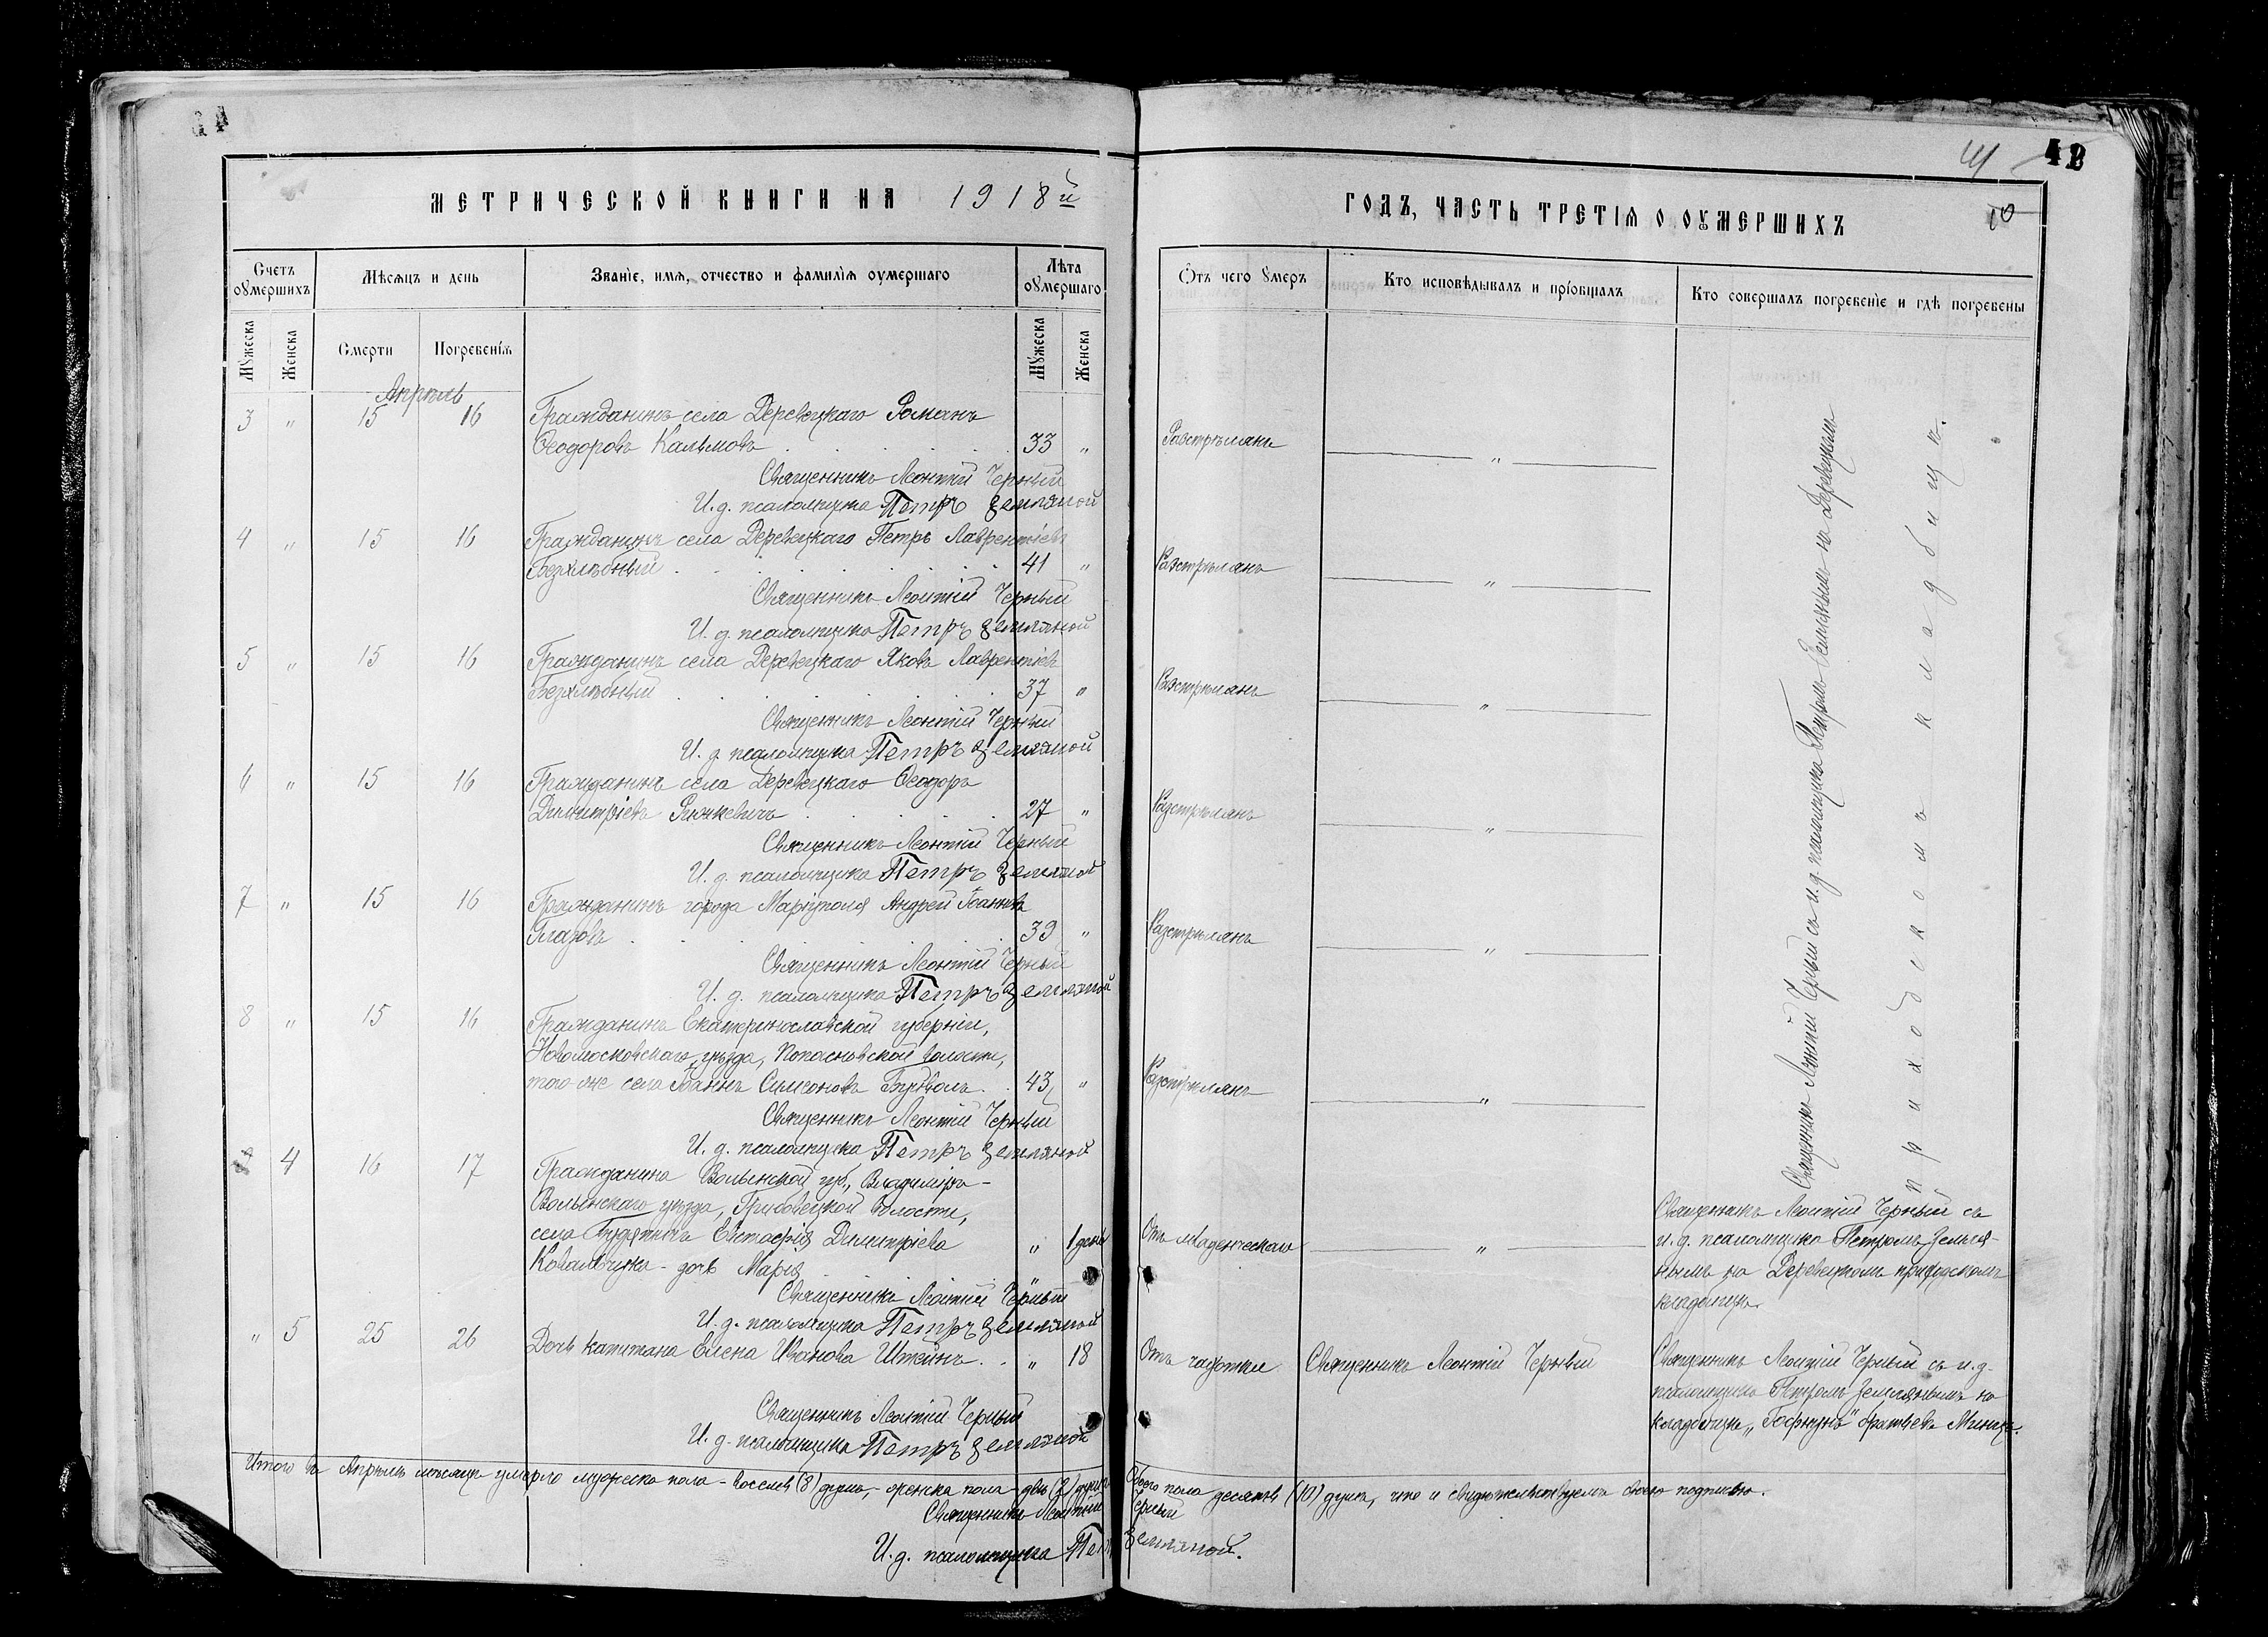 МЕТРИЧЕСКОЙ КНИГИ НА 1918й
ГОДЪ, ЧАСТЬ ТРЕТІѦ О ОУМЕРШИХЪ
41
42
10
Счетъ оумершихъ
Мѣсѧцъ и день
Званіе, имѧ, отчество и фамиліѧ оумершаго
Лѣта оумершаго
Мужеска
Женска
Смерти
Погребеніѧ
Мужеска
Женска
Отъ чего умеръ
Кто исповѣдывалъ и пріобщалъ
Кто совершалъ погребеніе и гдѣ погребены
Апрѣль
3 " 15 16 Гражданинъ села Деревецкаго Романъ
Ѳеодоровъ Калымовъ 33 " Разстрѣлянъ "
Священникъ Леонтій Черный
И. д. псаломщика Петръ Земляной
4 " 15 16 Гражданинъ села Деревецкаго Петръ Лаврентіевъ
Безхлѣбный 41 " Разстрѣлянъ "
Священникъ Леонтій Черный
И. д. псаломщика Петръ Земляной
5 " 15 16 Гражданинъ села Деревецкаго Яковъ Лаврентіевъ
Безхлѣбный 37 " Разстрѣлянъ "
Священникъ Леонтій Черный
И. д. псаломщика Петръ Земляной
6 " 15 16 Гражданинъ села Деревецкаго Ѳеодоръ
Димитріевъ 27 " Разстрѣлянъ "
Священникъ Леонтій Черный
И. д. псаломщика Петръ Земляной
7 " 15 16 Гражданинъ города Маріуполя Андрей Іоанновъ
Глазовъ 39 " Разстрѣлянъ "
Священникъ Леонтій Черный
И. д. псаломщика Петръ Земляной
8 " 15 16 Гражданинъ Екатеринославской губерніи,
Новомосковскаго уѣзда, Попасновской волости,
того-же села Іоаннъ Симеоновъ 43 " Разстрѣлянъ "
Священникъ Леонтій Черный
И. д. псаломщика Петръ Земляной
Священникъ Леонтій Черный съ и.д. псаломщика Петромъ Землянымъ на Деревецкомъ
приходскомъ кладбищѣ.
4 16 17 Гражданина Волынской губ., Владиміро-
Волынскаго уѣзда, Грибовецкой волости,
села Евстафія Димитріева " 1 день Отъ младенческаго "
Ковальчука - дочь Марія
Священникъ Леонтій Черный
И. д. псаломщика Петръ Земляной
Священникъ Леонтій Черный съ
и.д. псаломщика Петромъ Земля-
нымъ на Деревецкомъ приходскомъ
кладбищѣ.
" 5 25 26 Дочь капитана Елена Иванова Штейнъ " 18 Отъ чахотки Священникъ Леонтій Черный
Священникъ Леонтій Черный
И. д. псаломщика Петръ Земляной
Священникъ Леонтій Черный съ и.д.
псаломщика Петромъ Землянымъ на
кладбищѣ братьевъ
Итого въ Апрѣлѣ мѣсяцѣ умерло мужеска пола - восемь (8) душъ, женска пола двѣ (2) души Обоего пола десять (10) душъ, что и свидѣтельствуемъ своею подписью.
Священникъ Леонтій Черный
И. д. псаломщика Петръ Земляной.